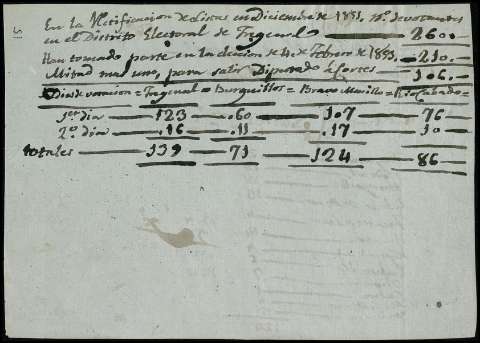 En la Rectificacion de Listas en Diciembre de 1851. No. de votantes
en el Distrito Electoral de Fregenal 260..
Han tomado parte en la eleccion de 4. de Febrero de 1853. 210.
Mitad mas uno, para salir Diputado á Cortes 106.
Dias de votacion = Fregenal = Burguillos = Bravo Murillo = Rio Cabado =
1er dia 123 .60 107 76
2o. dia .16 .11 .17 10
totales 139 71 124 86